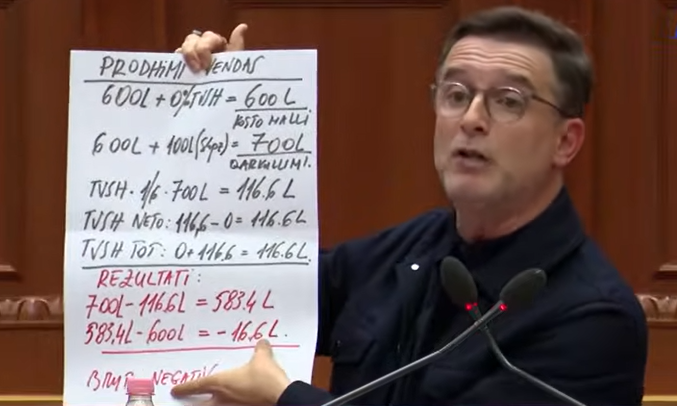 PRODHIMI VENDAS
600L + 0%TVSH = 600L
KOSTO MALLI
600L + 100L(Shpz) = 700L
QARKULLIMI.
TVSH · 1/6 · 700L = 116.6L
TVSH NETO: 116,6 - 0 = 116.6L
TVSH TOT: 0 + 116,6 = 116.6L
REZULTATI:
700L - 116.6L = 583.4L
583.4L - 600L = - 16.6L.
NEGATIV